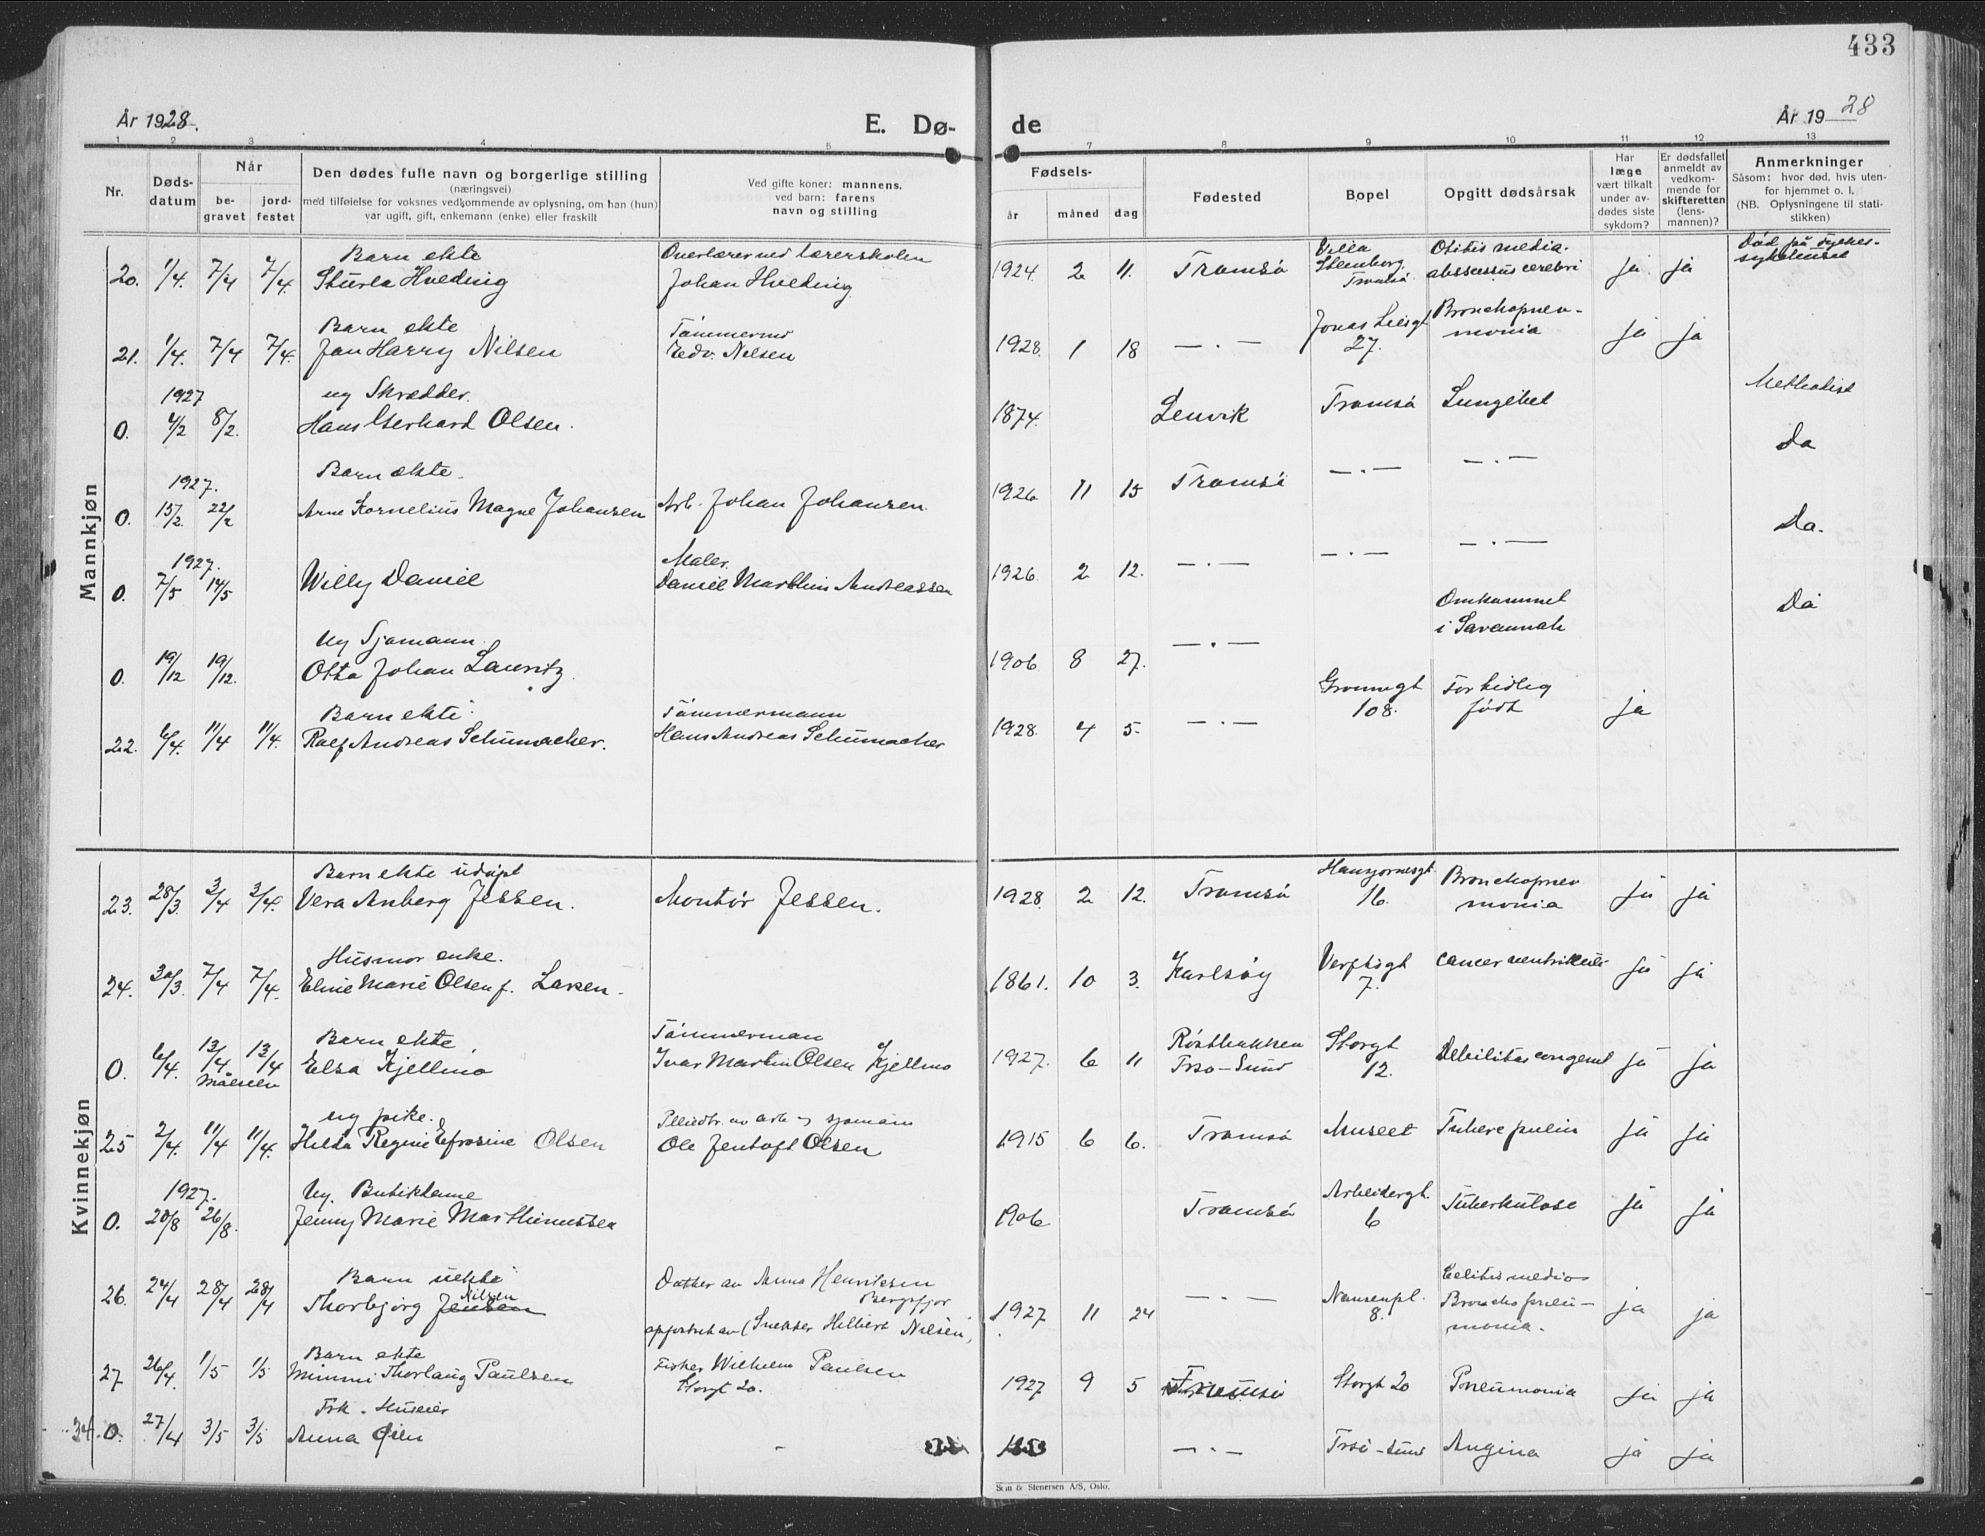 433
År 1928.
E. Dø-
de
År 1928
1 2 3 4 5 7 8 9 10 11 12 13
Nr.
Døds-
datum
Når
be-
gravet
jord-
festet
Den dødes fulle navn og borgerlige stilling
(næringsvei)
med tilføielse for voksnes vedkommende av oplysning, om han (hun)
var ugift, gift, enkemann (enke) eller fraskilt
Ved gifte koner: mannens,
ved barn: farens
navn og stilling
Fødsels-
år måned dag
Fødested
Bopel
Opgitt dødsårsak
Har
læge
vært tilkalt
under av-
dødes siste
sykdom?
Er dødsfallet
anmeldt av
vedkom-
mende for
skifteretten
(lens-
mannen)?
Anmerkninger
Såsom: hvor død, hvis uten-
for hjemmet o. l.
(NB. Oplysningene til stati-
stikken)
Mannkjøn
Barn ekte Overlærer ved lærerskolen Villa Otitis media. Død på
20. 1/4. 7/4 7/4. Sturla Hveding Johan Hveding 1924 2 11. Tromsø Stenborg Tromsø abscessus cerebri ja ja
Barn ekte Tømmermd Bronchopnev-
21. 1/4. 7/4 7/4. Jan Harry Nilsen Edv. Nilsen 1928. 1 18 — . — Jonas Liesgt 27. monia ja ja
1927 ug Skredder. Methodist
0. 4/2 8/2. Hans Gerhard Olsen. 1874. Lenvik Tromsø Lungebet
1927. Barn ekte. Da
0. 15/2. 22/2 Arne Kornelius Magne Johansen Arb. Johan Johansen. 1926 11 15 Tromsø — . — — . —
1927. Maler. Da.
0. 7/5 14/5 Willy Daniel Daniel Marthin Andreassen 1926. 2 12. — . — — . — — . —
Ug Sjømann. Omkommet Da
0. 19/12 19/12. Otto Johan Lauritz. 1906 8 27. — . — i Savannah
Barn ekte Tømmermann Grønnegt For tidlig
22. 6/4. 11/4 11/4. Rolf Andreas Schumacher. Hans Andreas Schumacher 1928. 4 5 — . — 108. født ja
Kvinnekjøn
Barn ekte udøpt Bronchopnev
23. 28/3 3/4 3/4. Vera Anberg Jessen. Montør Jessen. 1928. 2 12. Tromsø 16. monia ja ja
Husmor enke.
24. 30/3. 7/4 7/4. Eline Marie Olsen f. Larsen. 1861. 10 3. Karlsøy Verftsgt 7. cancer ventriculi ja ja
Barn ekte, Tømmerman
0. 6/4. 13/4 13/4 Elsa Kjellmo Ivar Martin Olsen Kjellmo 1927. 6 11 Trsø-Sund Storgt 12. Debilitas congenit ja ja
Målselv
ug pike.
25 2/4. 11/4 11/4. Hilda Regine Efrosine Olsen Ole Jentoft Olsen 1915 6 6. Tromsø Museet ja ja
1927. Ug. Butikdame
0. 20/8 26/8. Jenny Marie Marthinussen 1906 Tromsø Arbeidergt. 6 Tuberkulose ja ja
Barn uekte Datter av Anna Henriksen Bergsfjor
26. 24/4 28/4 28/4 Thorbjørg Jensen Nilsen opfostret av (Snekker Hilbert Nilsen) 1927 11 24 — . — Nansenpl. 8. Bronchopneu-
monia. ja ja
Barn ekte Fisker Wilhelm Paulsen
27 26/4. 1/5 1/5 Mimmi Thorlaug Paulsen Storgt 20. 1927 9 5 Tromsø Storgt 20 Pneumonia ja ja
Frk.
0. 27/4 3/5 3/5 Anna Øien — . — Trsø-Sund Angina ja ja
Sem & Stenersen A/S, Oslo.